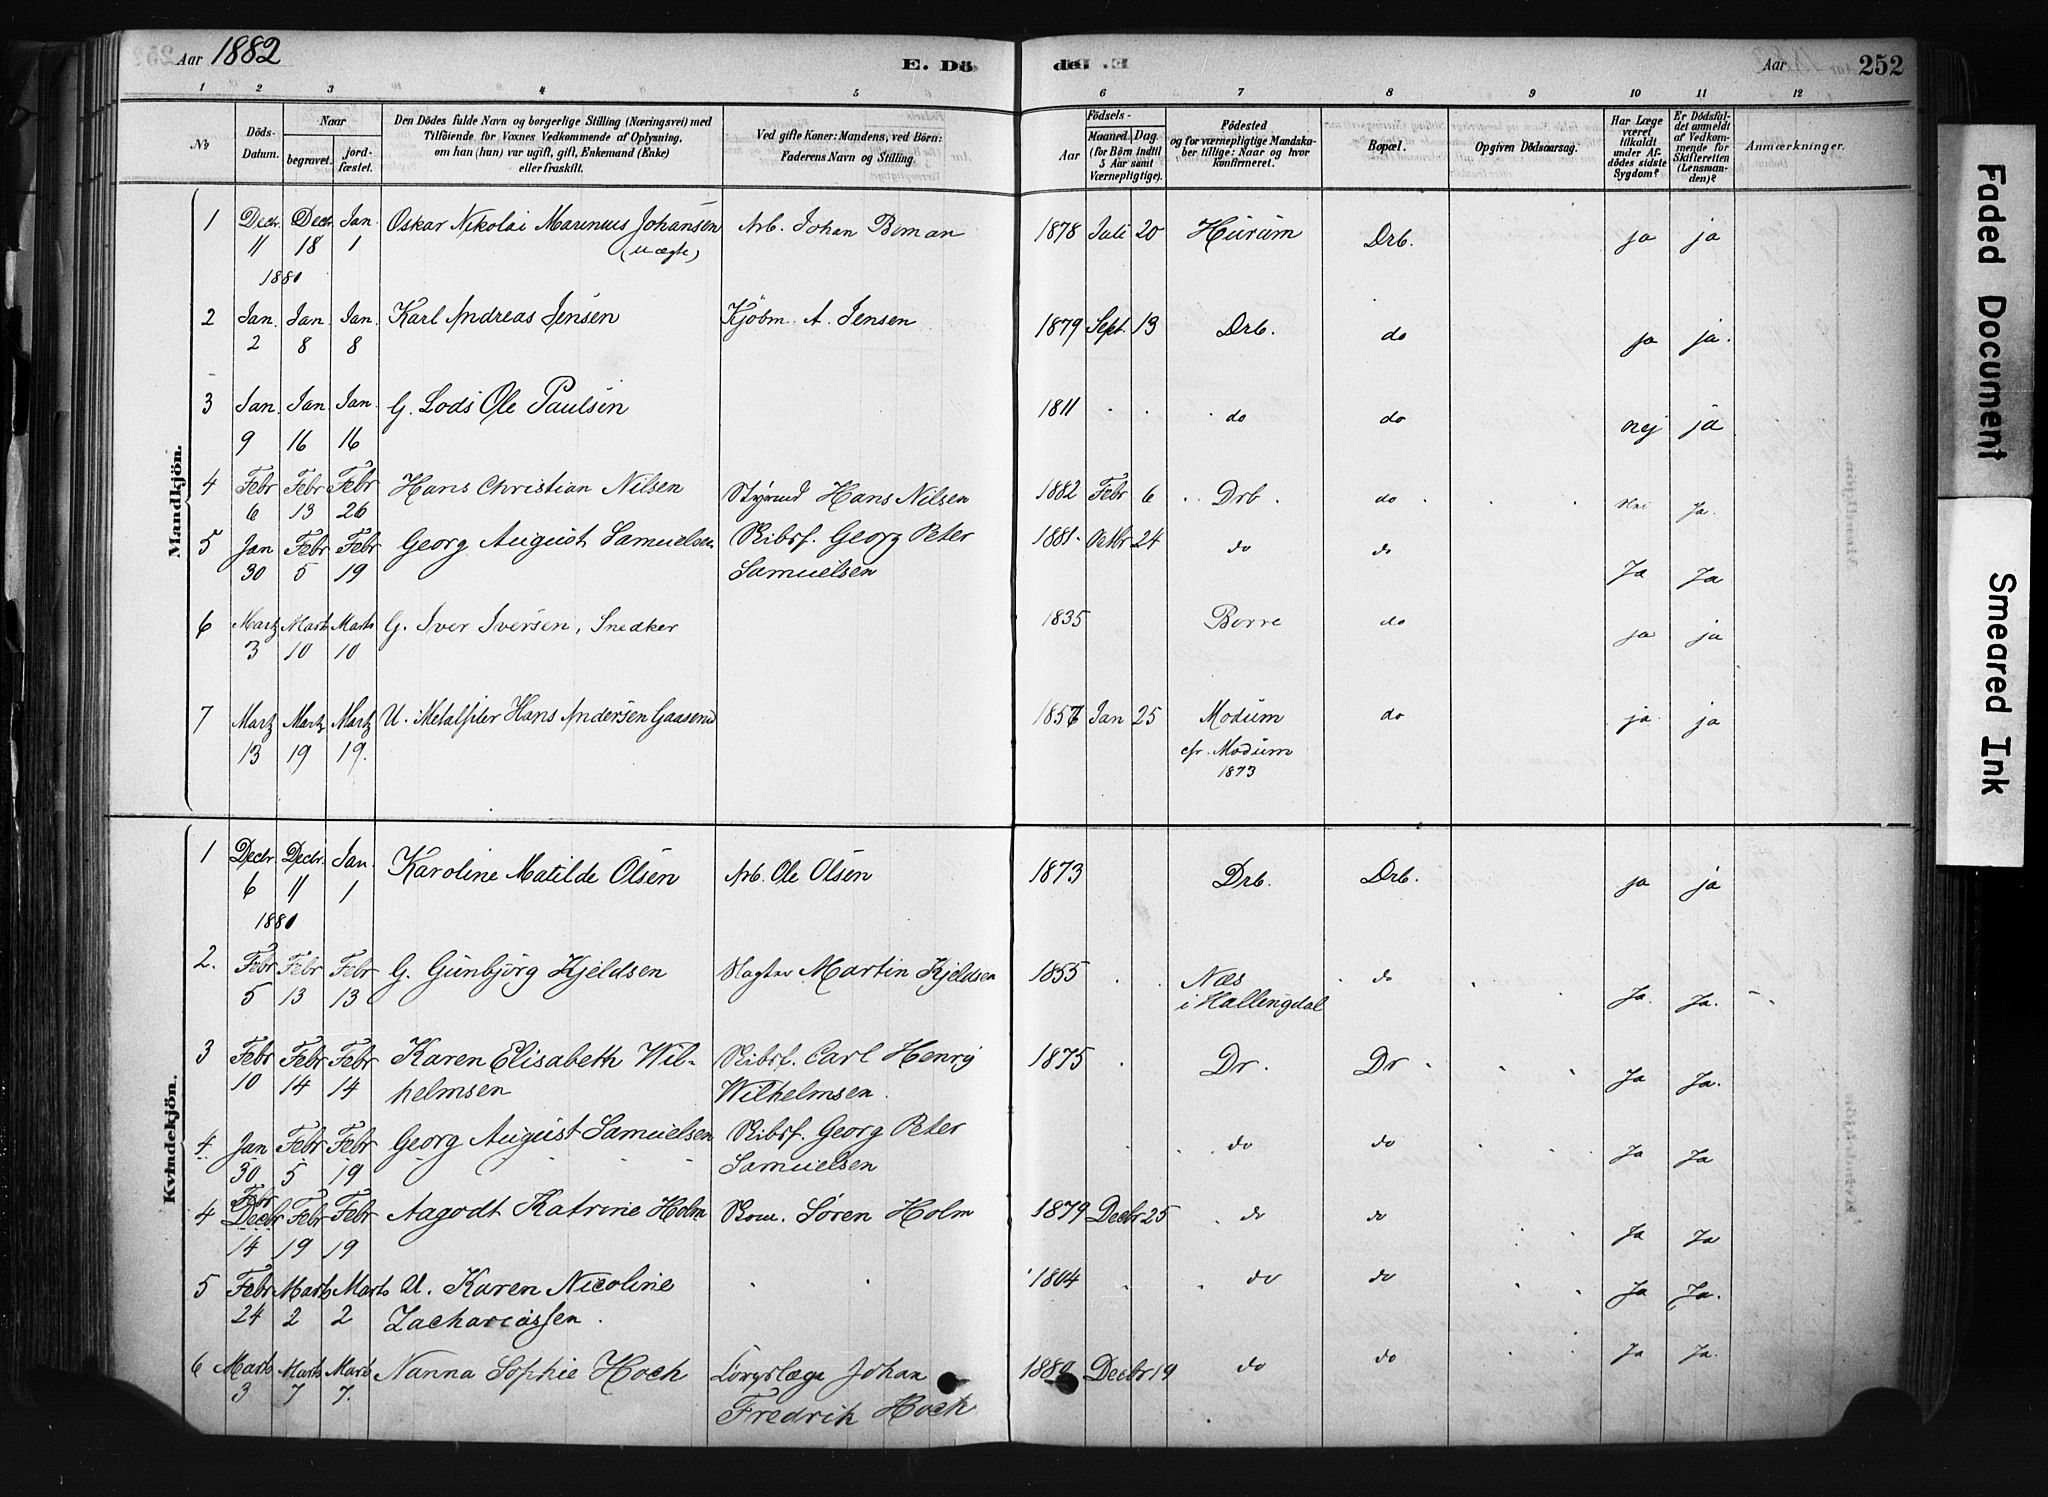 Aar 1882 E. Dö de. Aar 252
1 2 3 4 5 6 7 8 9 10 11 12
No Döds-Datum. Naar begravet. jordfæstet. Den Dödes fulde Navn og borgerlige Stilling (Næringsvei) med Tilföiende for Voxnes Vedkommende af Oplysning, om han (hun) var ugift, gift, Enkemand (Enke) eller fraskilt. Ved gifte Koner: Mandens, ved Börn: Faderens Navn og Stilling. Födsels- Aar Maaned. Dag. (for Börn indtil 5 Aar samt Værnepligtige). Födested og for værnepligtige Mandskaber tillige: Naar og hvor konfirmeret. Bopæl. Opgiven Dödsaarsag. Har Læge været tilkaldt under Afdödes sidste Sygdom? Er Dödsfaldet anmeldt af Vedkommende for Skifteretten (Lensmanden)? Anmærkninger.
Mandkjön.
1 Decr. 11 Decr. 18 Jan. 1 Oskar Nikolai Marinius Johansen Arb. Johan Boman 1878 Juli 20 Hurum Drb. ja ja
1881 (uægte)
2 Jan. 2 Jan. 8 Jan. 8 Karl Andreas Jensen Kjöbm. A. Jensen 1879 Sept. 13 Drb. do ja ja.
3 Jan. 9 Jan. 16 Jan. 16 G. Lods Ole Paulsen 1811 do do nej ja
4 Febr 6 Febr 13 Febr 26 Hans Christian Nilsen Styrmd Hans Nilsen 1882 Febr 6 Drb. do Nei Ja.
5 Jan 30 Febr 5 Febr 19 Georg August Samuelsen Skibsf. Georg Peter 1881 Octbr 24 do do Ja Ja
Samuelsen
6 Martz 3 Marts 10 Marts 10 G. Iver Iversen, Snedker 1835 Borre do ja ja
7 Martz 13 Martz 19 Martz 19. U. Metalfiler Hans Andersen Gaasend 1857 Jan 25 Modum do ja ja
cfr. Modum
1873
Kvindekjön.
1 Decbr. 6 Decbr. 11 Jan. 1 Karoline Matilde Olsen Arb. Ole Olsen 1873 Drb. Drb. ja ja
1881
2. Febr 5 Febr 13 Febr 13 G. Gunbjörg Kjeldsen Slagter Martin Kjeldsen 1855 Næs do Ja Ja.
i Hallingdal
3 Febr 10 Febr 14 Febr 14 Karen Elisabeth Wil- Skibsf. Carl Henry 1875 Dr. Dr Ja Ja.
helmsen Wilhelmsen.
4 Jan 30 Febr 5 Febr 19 Georg August Samuelsen Skibsf. Georg Peter do do Ja Ja
Samuelsen
4 Febr Decbr 14 Febr 19 Febr 19 Aagodt Katrine Holm Søren Holm 1879 Decbr 25 do do Ja Ja
5 Febr 24 Marts 2 Marts 2 U. Karen Nicoline 1804 do do Ja Ja.
Zachariassen.
6 Marts 3 Marts 7 Marts 7. Nanna Sophie Hoch Corpslæge Johan 1880 Decbr 19 do do Ja Ja.
Fredrik Hoch
Faded Document
Smeared Ink